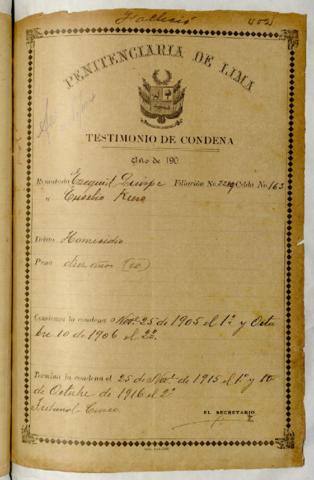 Falleció
PENITENCIARIA DE LIMA
TESTIMONIO DE CONDENA
Año de 190
Rematado Ezequiel Quispe Filiación No. Celda No. 163
" Eusebio
Delito Homicidio
Pena diez años (10)
Comienza la condena o Nov. 25 de 1905 el 1º y Octu
bre 10 de 1906 el 2º
Termina la condena el 25 de Nov. de 1915 el 1º y 10
de Octubre de 1916 el 2º
Tribunal Cuzco
EL SECRETARIO